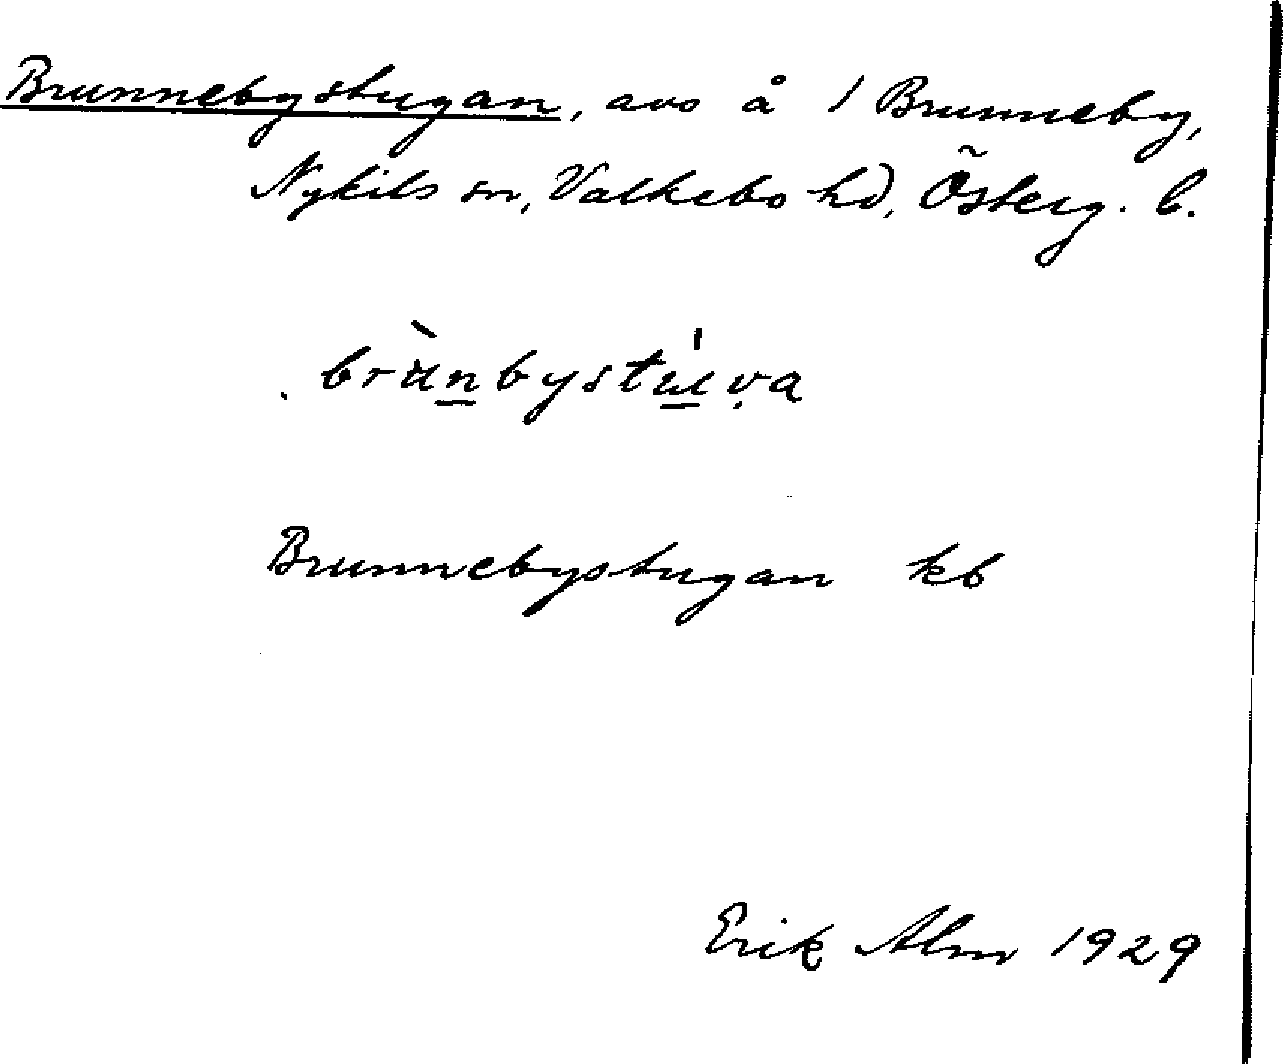 Brunnebystugan, avs å 1 Brunneby,
Nykils sn, Valkebo hd, Österg. l.
brùn̲bystu̲̍ṿa
Brunnebystugan kb
Erik Alm 1929